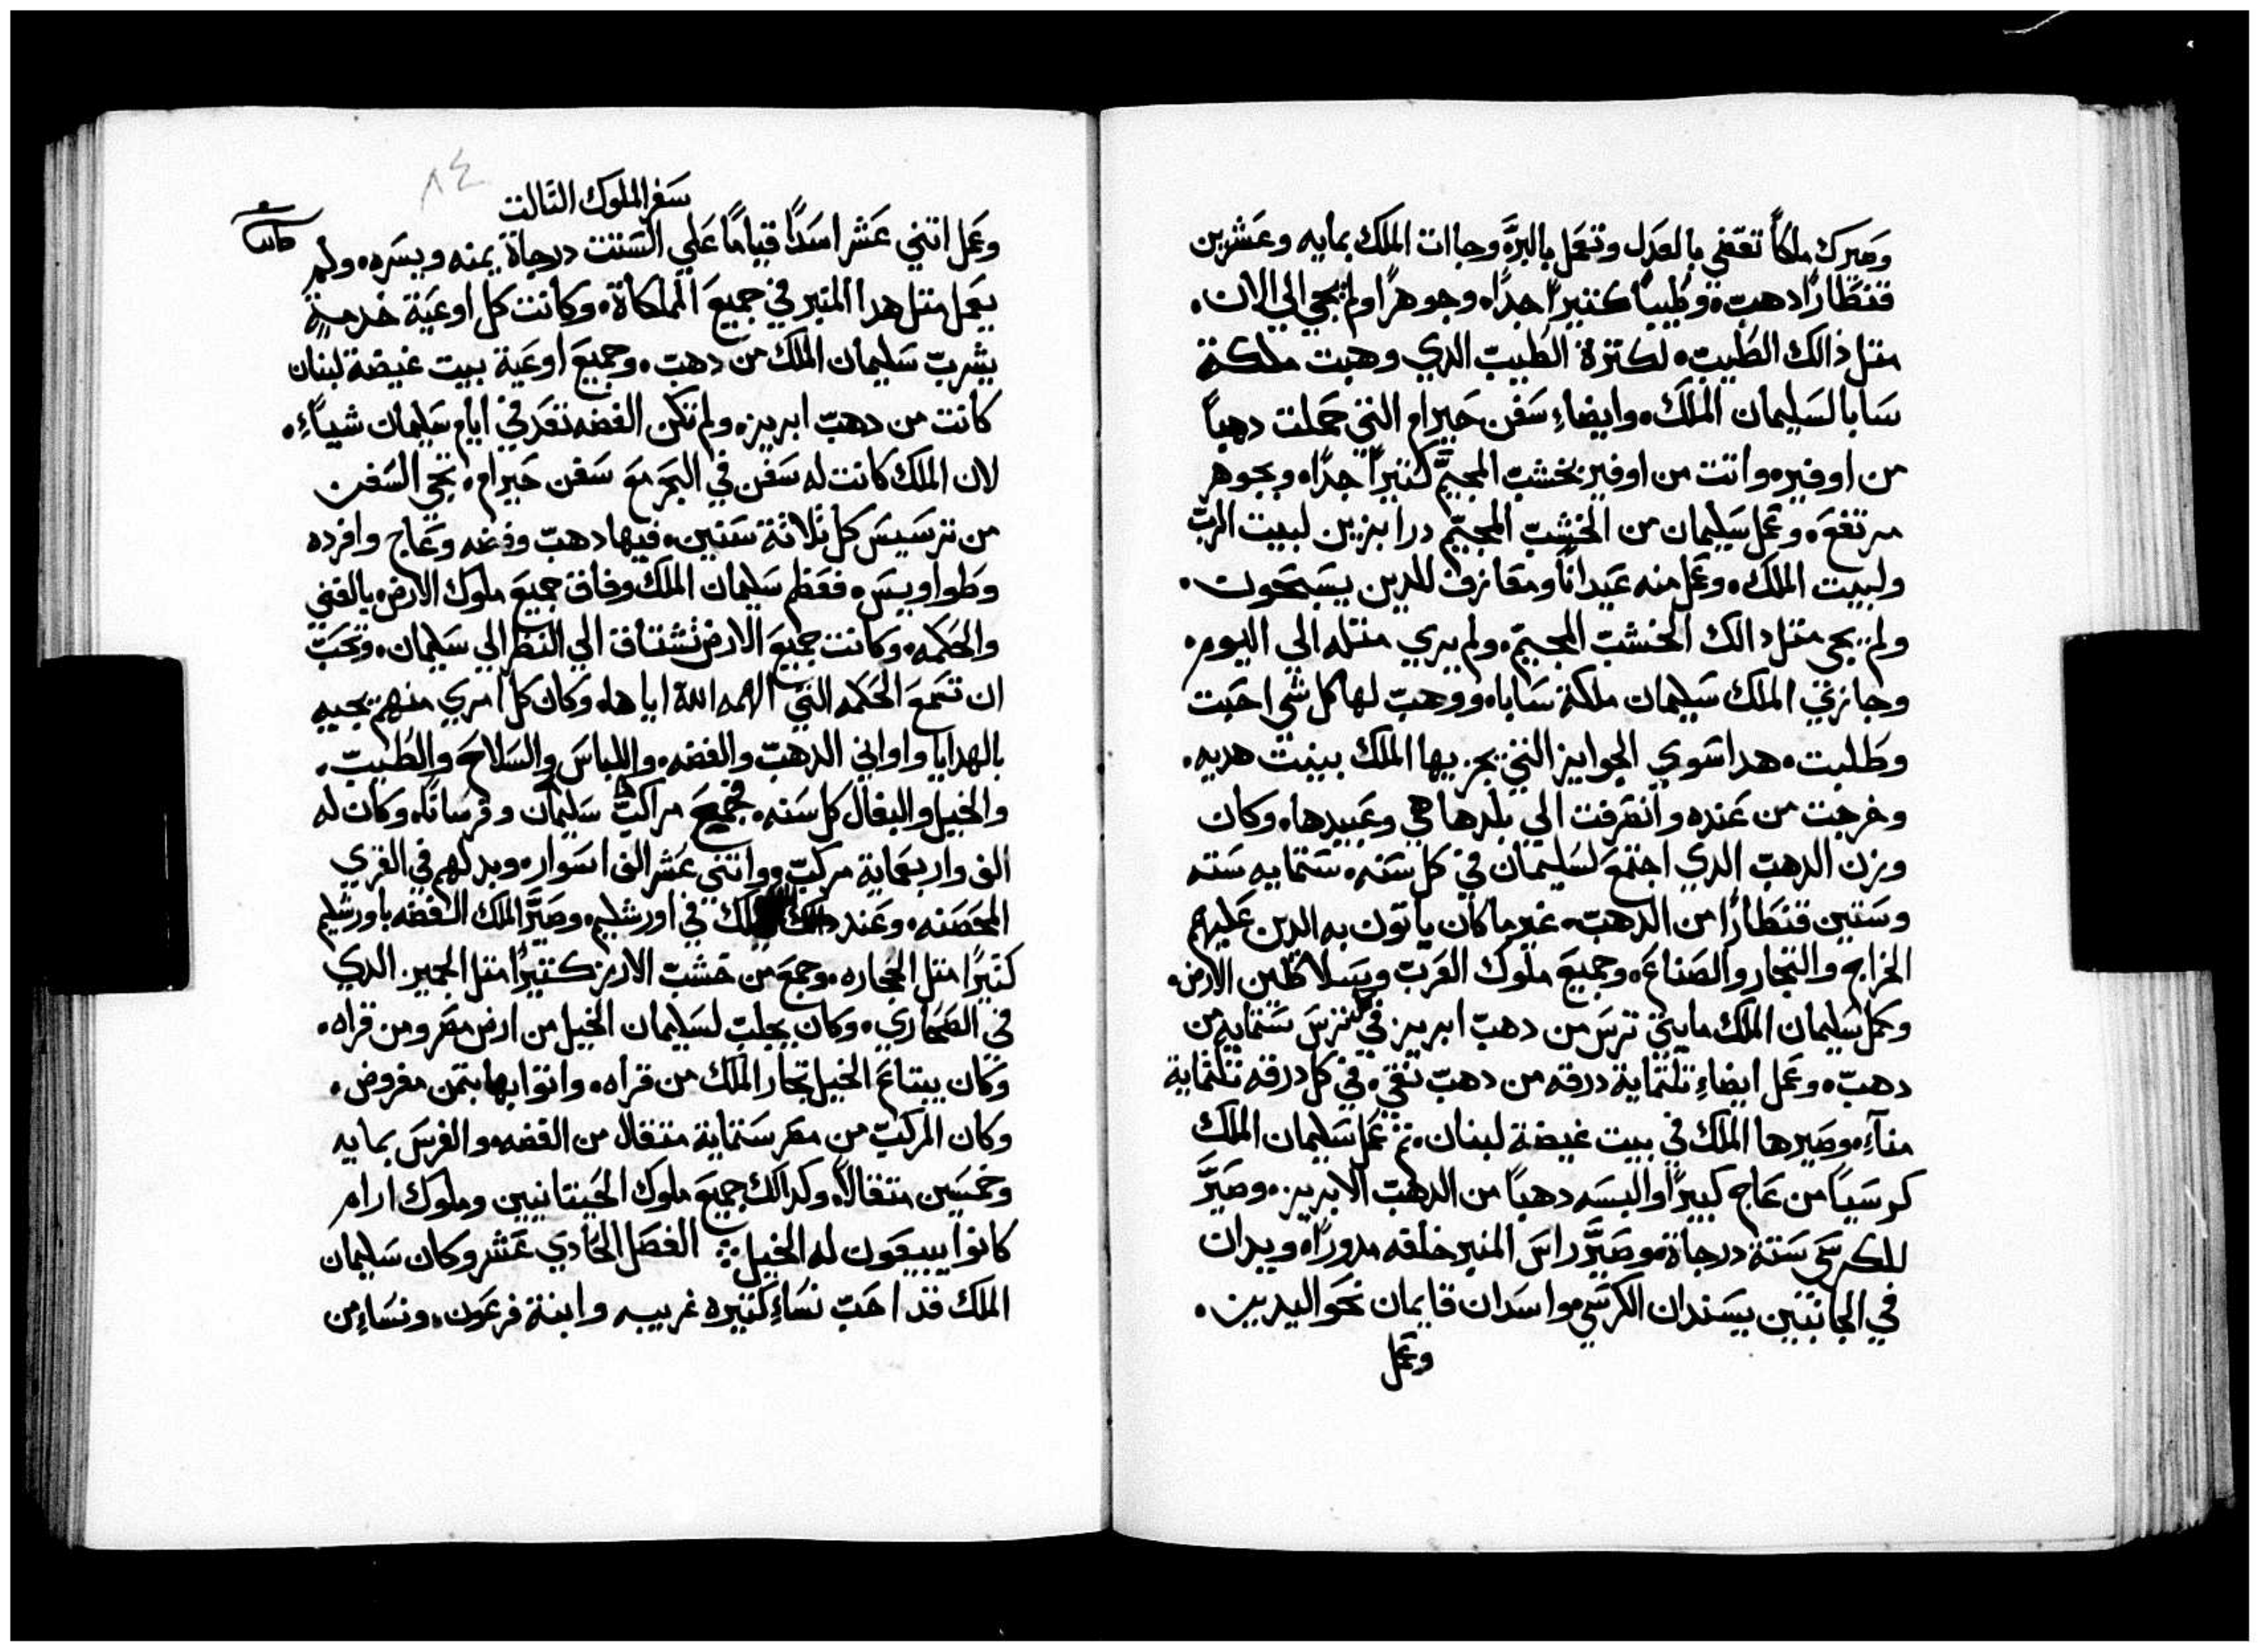 وصيرك ملكاً تقضي بالعدل وتعمل بالبرّ. وجاات الملك بمايه وعشرين
قنطارًا دهب. وطيباً كتيرًا جدًا. وجوهرًا ولم يجي الي الان.
متل ذالك الطيب. لكترة الطيب الدي وهبت ملكة
سابا لسليمان الملك. وايضاءِ سفن حيرام التي حملت دهباً
من اوفير. واتت من اوفير بخشب المجيّم كتيرًا جدًا. وبجوهر
مرتفع. وعمل سليمان من الخشب المجيّم درابزين لبيت الرب
ولبيت الملك. وعمل منه عيداناً ومعازف للدين يسبحون.
ولم يجي متل دالك الخشب المجيّم. ولم يري متله الي اليوم.
وجازي الملك سليمان ملكة سابا. ووهب لها كل شي احبت
وطلبت. هدا سوي الجوايز التي يجزيها الملك بينت هديه.
وخرجت من عنده وانصرفت الي بلدها هي وعبيدها. وكان
وزن الدهب الدي اجتمع لسليمان في كل سنه. ستمايه سته
وستين قنطارًا من الدهب. غير ما كان ياتون به الدين عليهم
الخراج والتجار والصناع. وجميع ملوك العرب وسلاطين الارض.
وعمل سليمان الملك مايتي ترس من دهب ابريز في كل ترس ستمايه من
دهب. وعمل ايضاءِ تلتماية درقه من دهب نقي. في كل درقه تلتماية
مناّءِ. وصيرها الملك في بيت غيضة لبنان. تم عمل سليمان الملك
كرسياً من عاج كبيرًا والبسه دهباً من الدهب الابريز. وصيّر
للكرسي ستة درجاة. وصيّر راس المنبر خلفه مدورًا. ويدان
في الجانبين يسندان الكرسي. واسدان قايمان نحو اليدين.
وعمل
٨٤
سفر الملوك التالت
وعمل اتني عشر اسدًا قياماً علي الستت درجاة يمنه ويسره. ولم
يعمل متل هدا المنبر في جميع المملكاة. وكانت كل اوعية خدمة
يشرب سليمان الملك من دهب. وجميع اوعية بيت غيضة لبنان
كانت من دهب ابريز. ولم تكن الفضه تعد في ايام سليمان شياًءِ.
لان الملك كانت له سفن في البحر مع سفن حيرام. تجي السفن
من ترسيس كل تلاتة سنين. فيها دهب وفضه وعاج وافرده
وطواويس. فعظم سليمان الملك وفاق جميع ملوك الارض. بالغني
والحكمه. وكانت جميع الارض تشتاق الي النظر الي سليمان. وتحب
ان تسمع الحكمه التي الهمه الله اياها. وكان كل امري منهم يجيه
بالهدايا واواني الدهب والفضه. واللباس والسلاح والطيب.
والخيل والبغال كل سنه. فجمع مراكب سليمان وفرساناً. وكان له
الف واربعماية مركب. واتني عشر الف اسوار. وبدلهم في القري
المحصنه. وعند الملك في اورشليم. وصيّر الملك الفضه باورشليم
كتيرًا متل الحجاره. وجمع من خشب الارز كتيرًا متل الجميز الدي
في الصحاري. وكان يجلب لسليمان الخيل من ارض مصر ومن قراه.
وكان يبتاع الخيل تجار الملك من قراه. واتوا بها بتمن مفروض.
وكان المركب من مصر ستماية متقال من الفضه. والفرس بمايه
وخمسين متقالاً. وكدالك جميع ملوك الحيتانيين وملوك ارام
كانوا يبيعون له الخيل. الفصل الحادي عشر وكان سليمان
الملك قد احب نساءِ كتيره غريبه وابنة فرعون. ونساءِ من